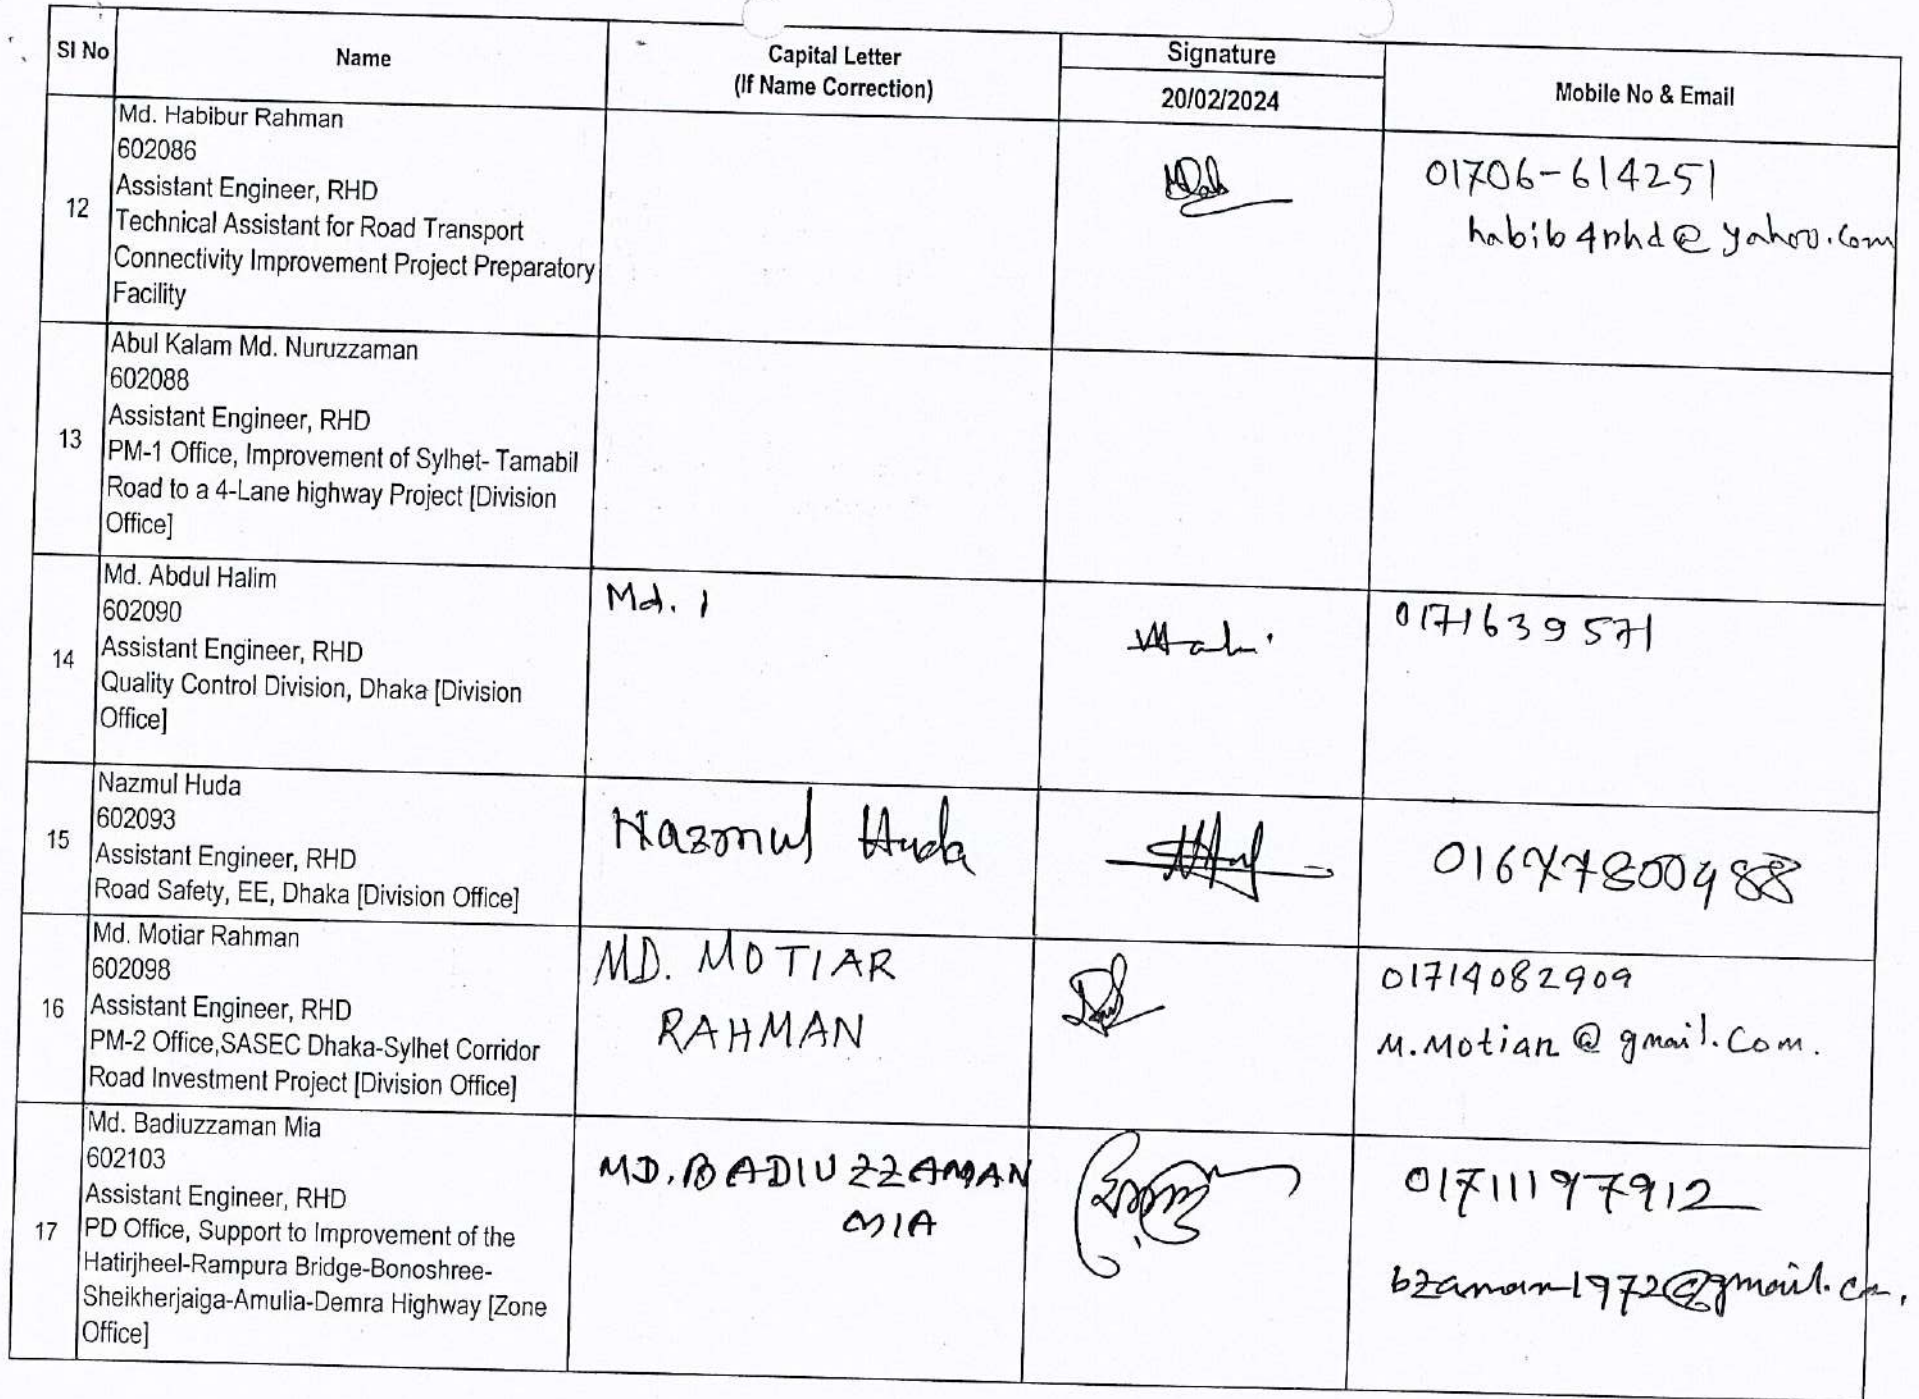 SI No
Name
Capital Letter
(If Name Correction)
Signature
20/02/2024
Mobile No & Email
12
Md. Habibur Rahman
602086
Assistant Engineer, RHD
Technical Assistant for Road Transport
Connectivity Improvement Project Preparatory
Facility
01706-614251
habib4rhd@yahoo.com
13
Abul Kalam Md. Nuruzzaman
602088
Assistant Engineer, RHD
PM-1 Office, Improvement of Sylhet- Tamabil
Road to a 4-Lane highway Project [Division
Office]
14
Md. Abdul Halim
602090
Assistant Engineer, RHD
Quality Control Division, Dhaka [Division
Office]
Md. 1
0171639571
15
Nazmul Huda
602093
Assistant Engineer, RHD
Road Safety, EE, Dhaka [Division Office]
Nazmul Huda
01677800988
16
Md. Motiar Rahman
602098
Assistant Engineer, RHD
PM-2 Office,SASEC Dhaka-Sylhet Corridor
Road Investment Project [Division Office]
MD. MOTIAR
RAHMAN
01714082909
M.Motiar@gmail.Com.
17
Md. Badiuzzaman Mia
602103
Assistant Engineer, RHD
PD Office, Support to Improvement of the
Hatirjheel-Rampura Bridge-Bonoshree-
Sheikherjaiga-Amulia-Demra Highway [Zone
Office]
MD. BADIUZZAMAN
MIA
01711197912
bzaman1972@gmail.com.